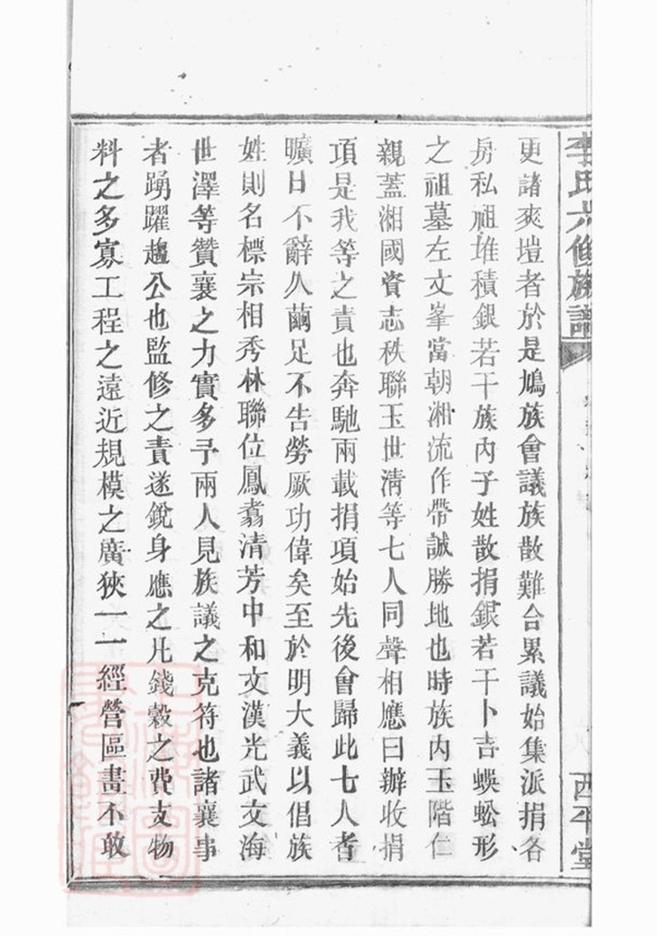 李氏六修族譜
西平堂
更諸爽塏者於是鳩族會議族散難合累議始集派捐各
房私祖堆積銀若干族內子姓散捐銀若干卜吉蜈蚣形
之祖墓左文峯當朝湘流作帶誠勝地也時族內玉階仁
親蓋湘國資志秩聯玉世清等七人同聲相應曰辦收捐
項是我等之責也奔馳兩載捐項始先後會歸此七人者
曠日不辭久繭足不告勞厥功偉矣至於明大義以倡族
姓則名標宗相秀林聯位鳳翥清芳中和文漢光武文海
世澤等贊襄之力實多予兩人見族議之克符也諸襄事
者踴躍趨公也監修之責遂銳身應之凡錢穀之費支物
料之多寡工程之遠近規模之廣狹一一經營區畫不敢